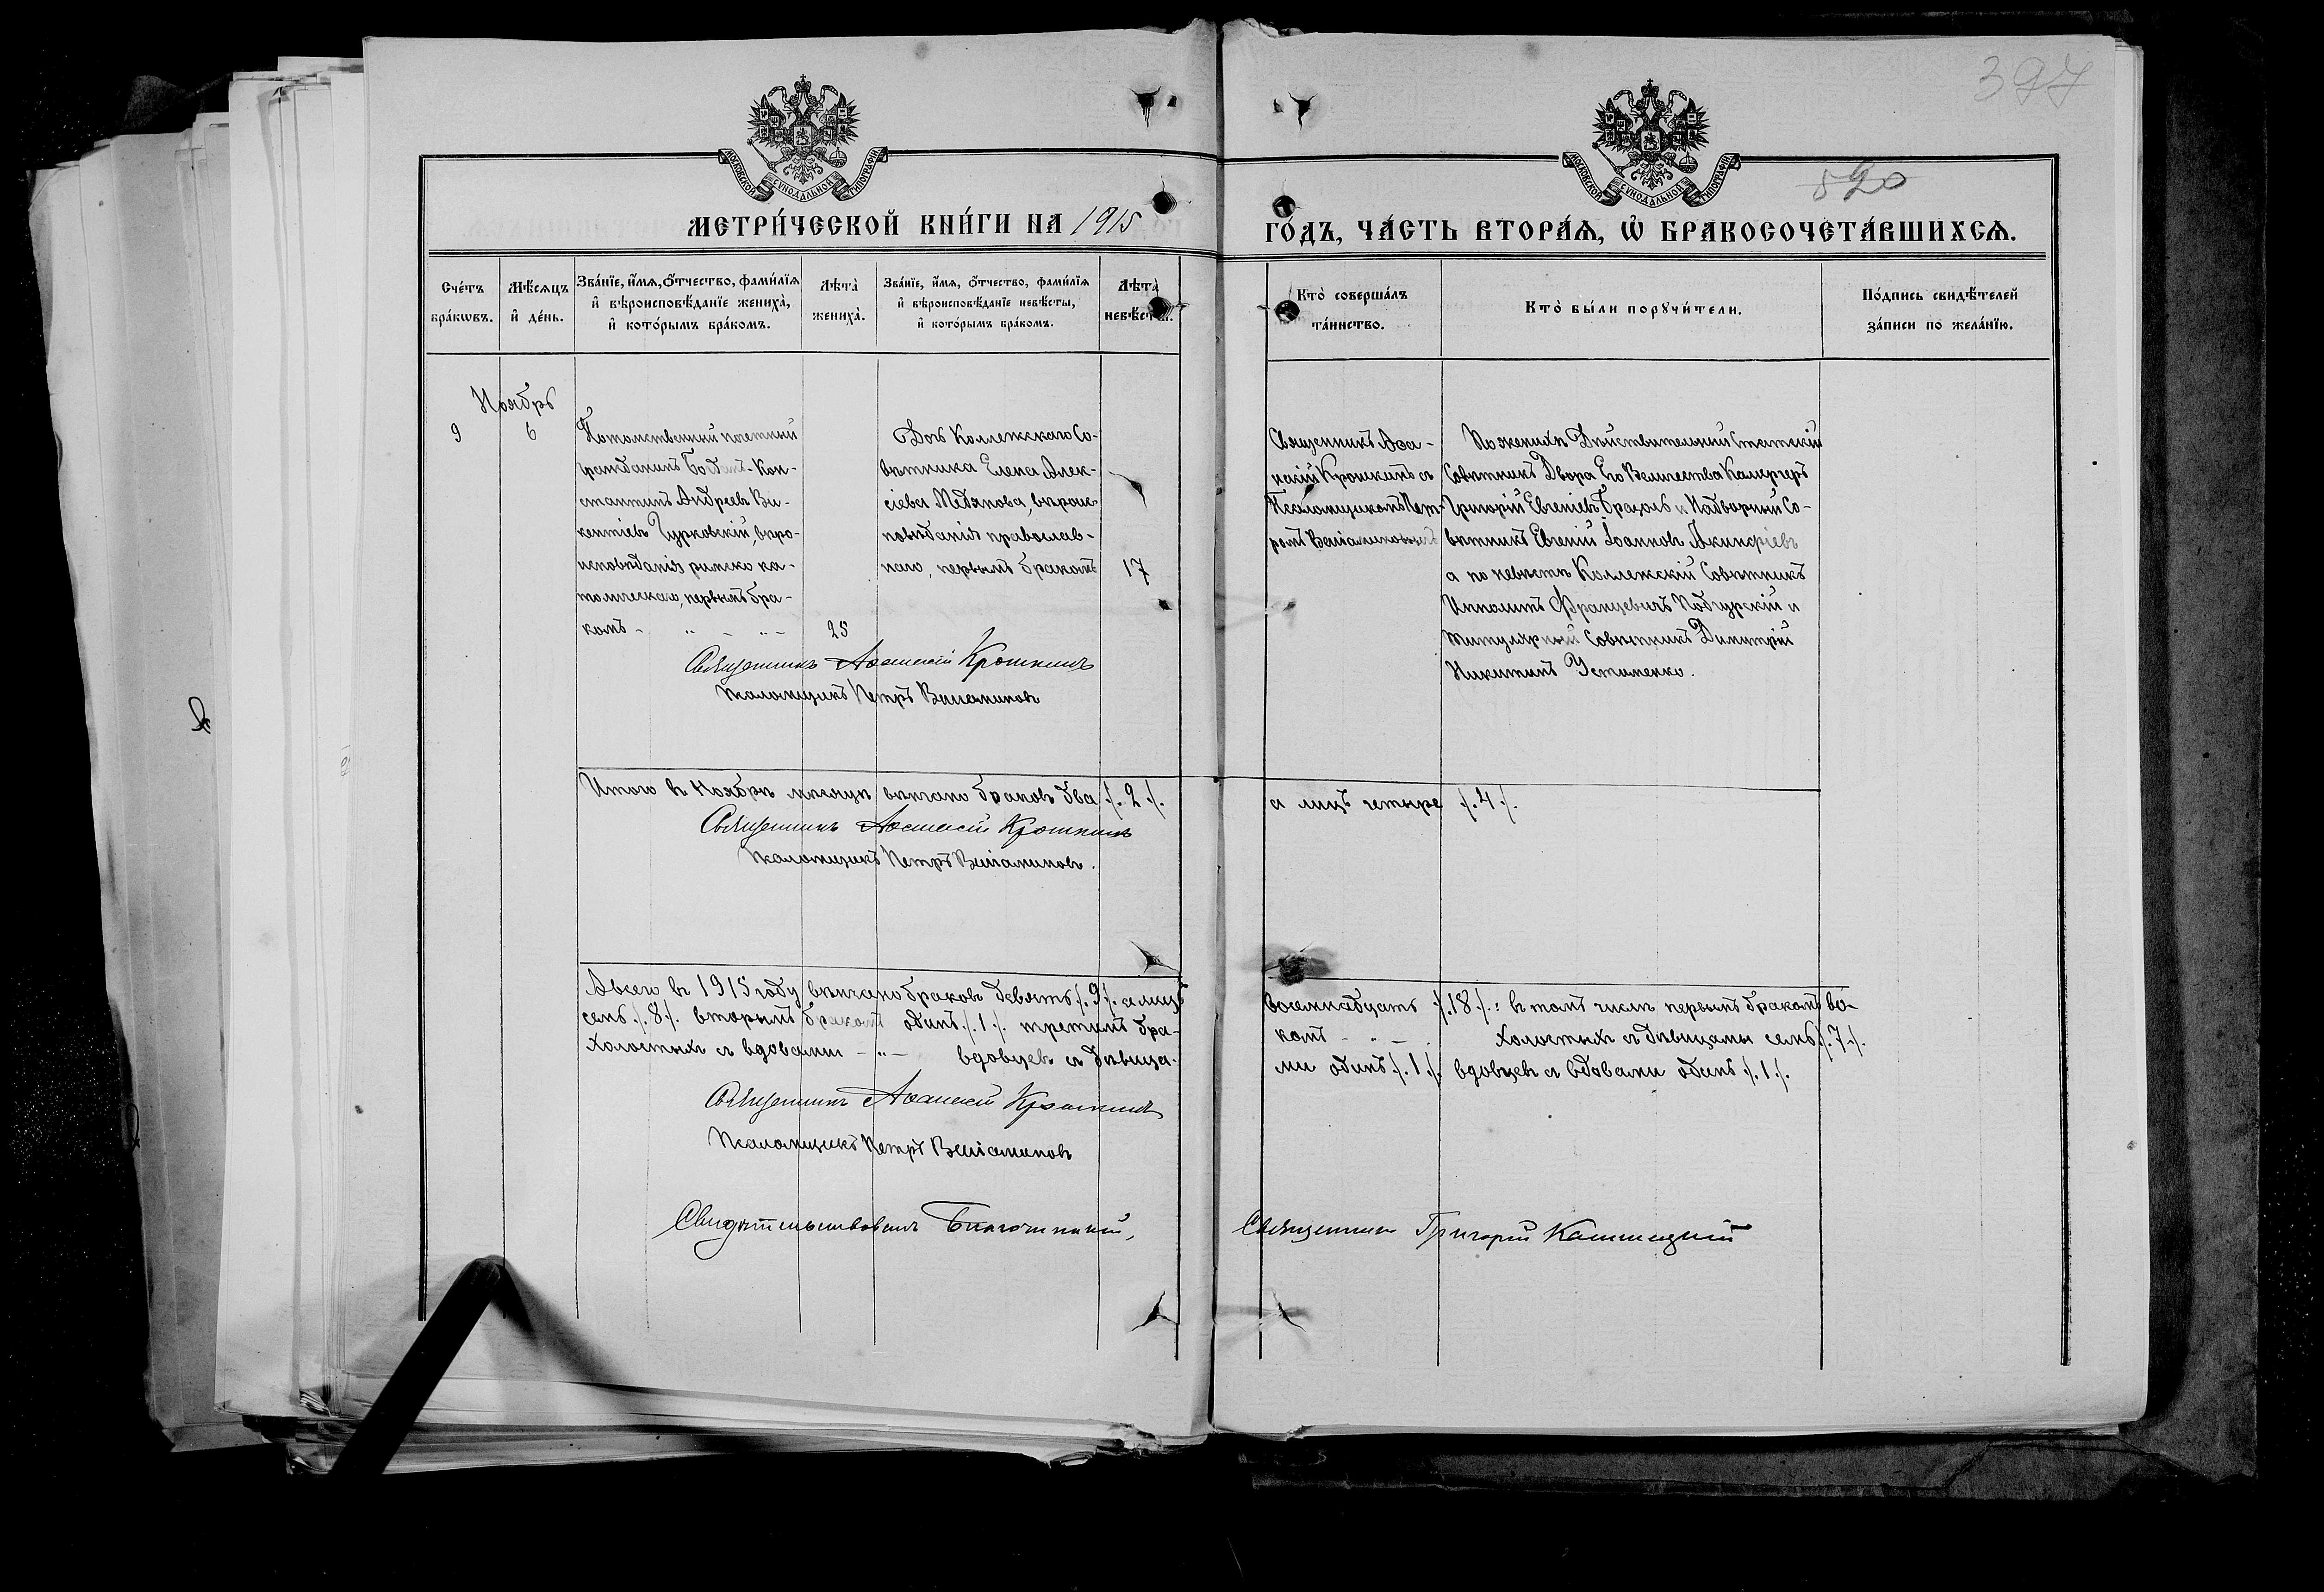 397
МОСКОВСКОЙ СѴНОДАЛЬНОЙ ТИПОГРАФІИ
МОСКОВСКОЙ СѴНОДАЛЬНОЙ ТИПОГРАФІИ
520
МЕТРИ́ЧЕСКОЙ КНИ́ГИ НА 1915
ГО́ДЪ, ЧА́СТЬ ВТОРА́Ѧ, Ѽ БРАКОСОЧЕТА́ВШИХСѦ.
Счётъ бра́кѡвъ.
Мѣ́сѧцъ и҆ де́нь.
Зва́нїе, и҆́мѧ, ѻ҆́тчество, фами́лїѧ
и҆ вѣроисповѣ́данїе жениха̀,
и҆ кото́рымъ бра́комъ.
Лѣта̀ жениха̀.
Зва́нїе, и҆́мѧ, ѻ҆́тчество, фами́лїѧ
и҆ вѣроисповѣ́данїе невѣ́сты,
и҆ кото́рымъ бра́комъ.
Лѣта̀ невѣ́сты.
Кто̀ соверша́лъ
та́инство.
Кто̀ бы́ли порꙋчи́тели.
По́дпись свидѣ́телей
за́писи по жела́нїю.
Ноябрь
9
6
Потомственный почетный
гражданинъ Богданъ-Кон-
стантинъ Андреевъ Ви-
кентіевъ Гурковскій, вѣро-
исповѣданія римско ка-
толическаго, первымъ бра-
комъ - " - " -
25
Дочь Коллежскаго Со-
вѣтника Елена Алек-
сіева Медянова, вѣроис-
повѣданія православ-
наго, первымъ бракомъ
17
Священникъ Аѳа-
насій Крошкинъ съ
Псаломщикомъ Пет-
ромъ Веніаминовымъ
По женихѣ Дѣйствительный Статскій
Совѣтникъ Двора Его Величества Камергеръ
Григорій Евгеніевъ и Надворный Со-
вѣтникъ Евгеній Іоанновъ Акинфіевъ
а по невѣстѣ Коллежскій Совѣтникъ
Ипполитъ Францевичъ Подгурскій и
титулярный совѣтникъ Димитрій
Никитинъ Устименко.
Священникъ Аѳанасій Крошкинъ
Псаломщикъ Петръ Веніаминовъ
Итого въ Ноябрѣ мѣсяцѣ вѣнчано браковъ два /. 2 /.
а лицъ четыре /. 4 /.
Священникъ Аѳанасій Крошкинъ
Псаломщикъ Петръ Веніаминовъ.
Всего въ 1915 году вѣнчано браковъ девять /. 9 /. а лицъ
восемнадцать /. 18 /.: въ томъ числѣ первымъ бракомъ во-
семь /. 8 /. вторымъ бракомъ одинъ /. 1 /. третьимъ бра-
комъ - " - холостыхъ съ дѣвицами семь /. 7 /.
холостыхъ съ вдовами - " - вдовцевъ съ дѣвица-
ми одинъ /. 1 /. вдовцевъ съ вдовами одинъ /. 1 /.
Священникъ Аѳанасій Крошкинъ
Псаломщикъ Петръ Веніаминовъ
Свидѣтельствовалъ Благочинный,
Священникъ Григорій